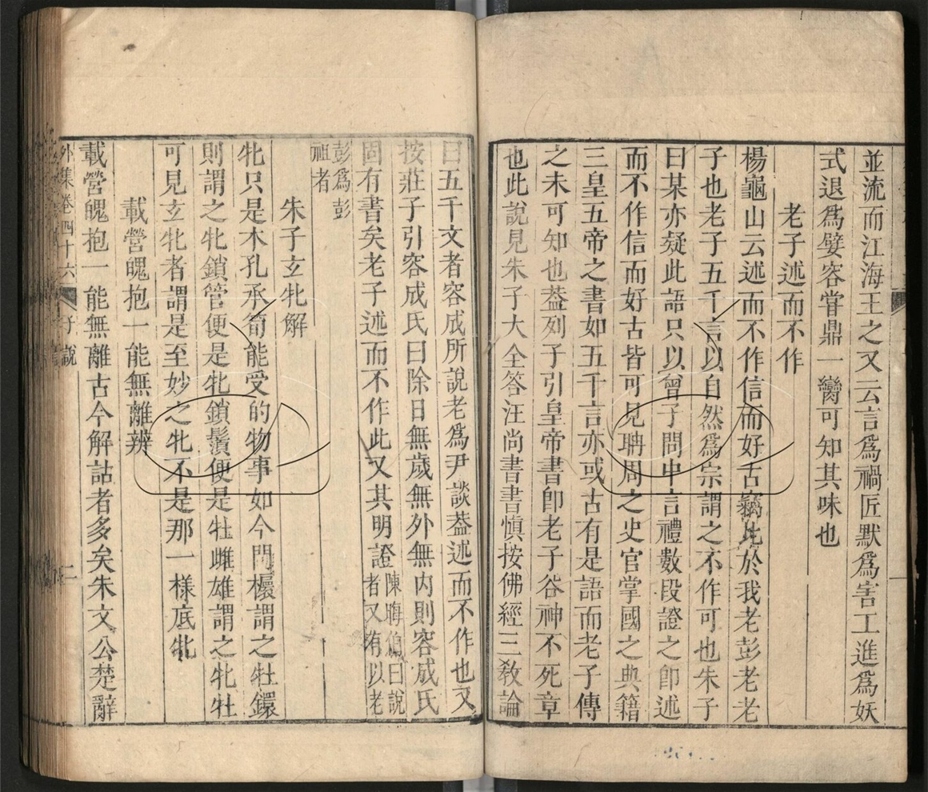 並流而江海王之又云言為禍匠默為害工進為妖
式退為嬖容嘗鼎一臠可知其味也
老子述而不作
楊龜山云述而不作信而好古竊比於我老彭老老
子也老子五千言以自然為宗謂之不作可也朱子
曰某亦疑此語只以曾子問中言禮數段證之即述
而不作信而好古皆可見聃周之史官掌國之典籍
三皇五帝之書如五千言亦或古有是語而老子傳
之未可知也葢列子引皇帝書卽老子谷神不死章
也此說見朱子大全答汪尚書書慎按佛經三敎論
曰五千文者容成所說老為尹談葢述而不作也又
按莊子引容成氏曰除日無歲無外無内則容成氏
固有書矣老子述而不作此又其明證陳晦伯曰說
者又有以老
彭為彭
祖者
朱子玄牝解
牝只是木孔承筍能受的物事如今門櫃謂之牡鐶
則謂之牝鎖管便是牝鎖鬚便是牡雌雄謂之牝牡
可見玄牝者謂是至妙之牝不是那一樣底牝
載營魄抱一能無離辨
載營魄抱一能無離古今解詁者多矣朱文公楚辭
外集卷四十六
二